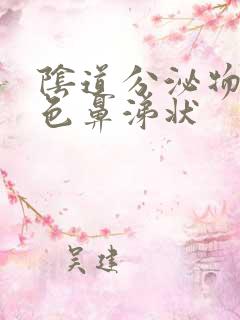 陰道分泌物
色鼻涕狀
吴建